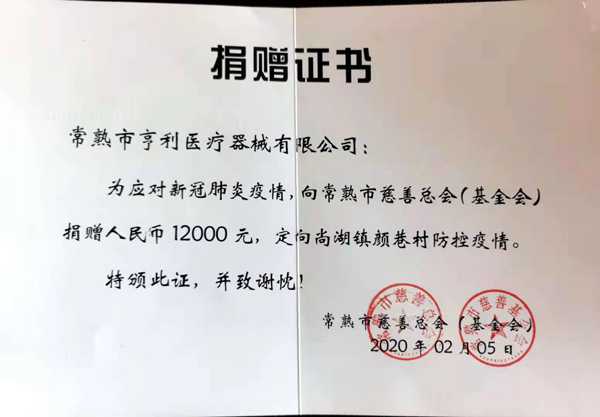 捐赠证书
常熟市亨利医疗器械有限公司：
为应对新冠肺炎疫情，向常熟市慈善总会（基金会）
捐赠人民币12000元，定向尚湖镇颜巷村防控疫情。
特颁此证，并致谢忱！
常熟市慈善总会（基金会）
2020年02月05日
常熟市慈善总会
常熟市慈善基金会